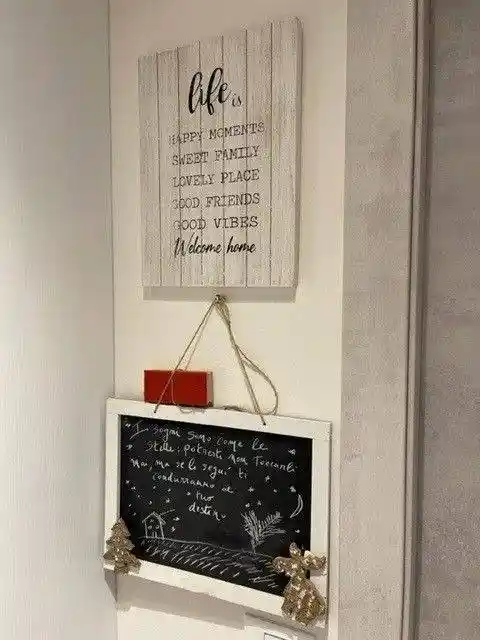 life is
HAPPY MOMENTS
SWEET FAMILY
LOVELY PLACE
GOOD FRIENDS
GOOD VIBES
Welcome home
I sogni sono come le
stelle: potresti non toccarli
mai, ma se li segui ti
condurranno al
tuo
destino